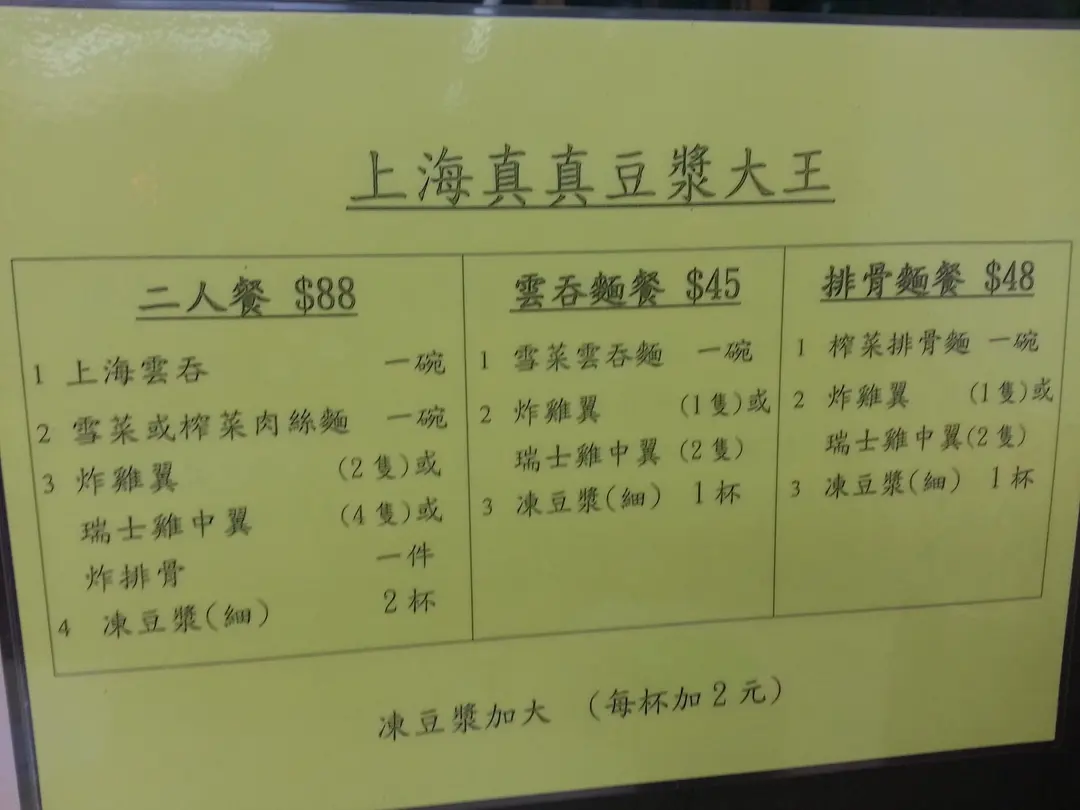 上海真真豆漿大王
二人餐 $88
1 上海雲吞 一碗
2 雪菜或榨菜肉絲麵 一碗
3 炸雞翼 (2隻)或
瑞士雞中翼 (4隻)或
炸排骨 一件
4 凍豆漿(細) 2杯
雲吞麵餐 $45
1 雪菜雲吞麵 一碗
2 炸雞翼 (1隻)或
瑞士雞中翼 (2隻)
3 凍豆漿(細) 1杯
排骨麵餐 $48
1 榨菜排骨麵 一碗
2 炸雞翼 (1隻)或
瑞士雞中翼(2隻)
3 凍豆漿(細) 1杯
凍豆漿加大 (每杯加2元)